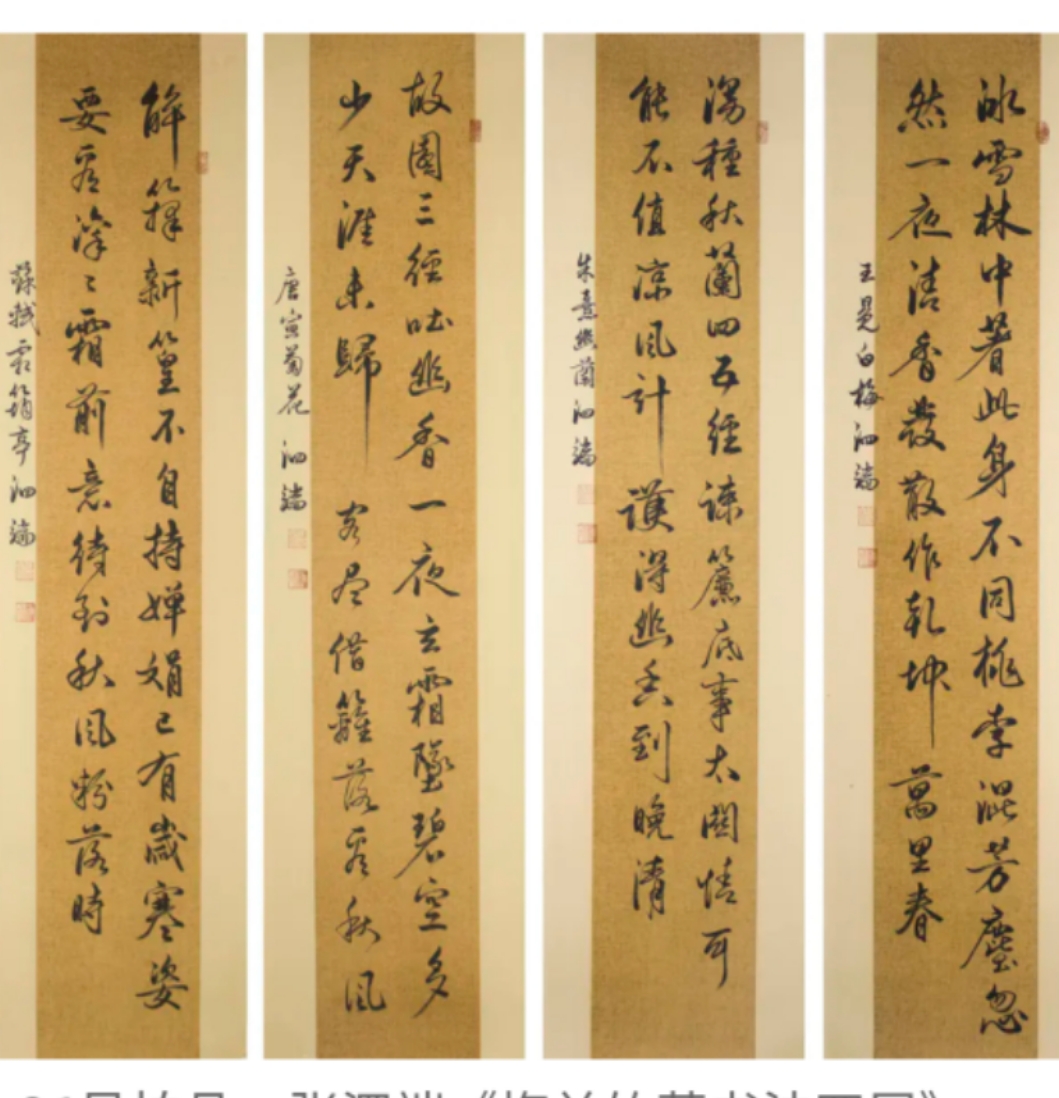 冰雪林中著此身不同桃李混芳塵忽
然一夜清香發散作乾坤萬里春
王冕白梅 泗端
漫種秋蘭四五經疎簾底事太關情可
能不值涼風計護得幽香到晚清
朱熹幽蘭 泗端
故園三徑吐幽香一夜玄霜墜碧空多
少天涯未歸客盡借籬落看秋風
唐寅菊花 泗端
解籜新篁不自持嬋娟已有歲寒姿
要看凜々霜前意待到秋風粉落時
蘇軾霜筠亭 泗端